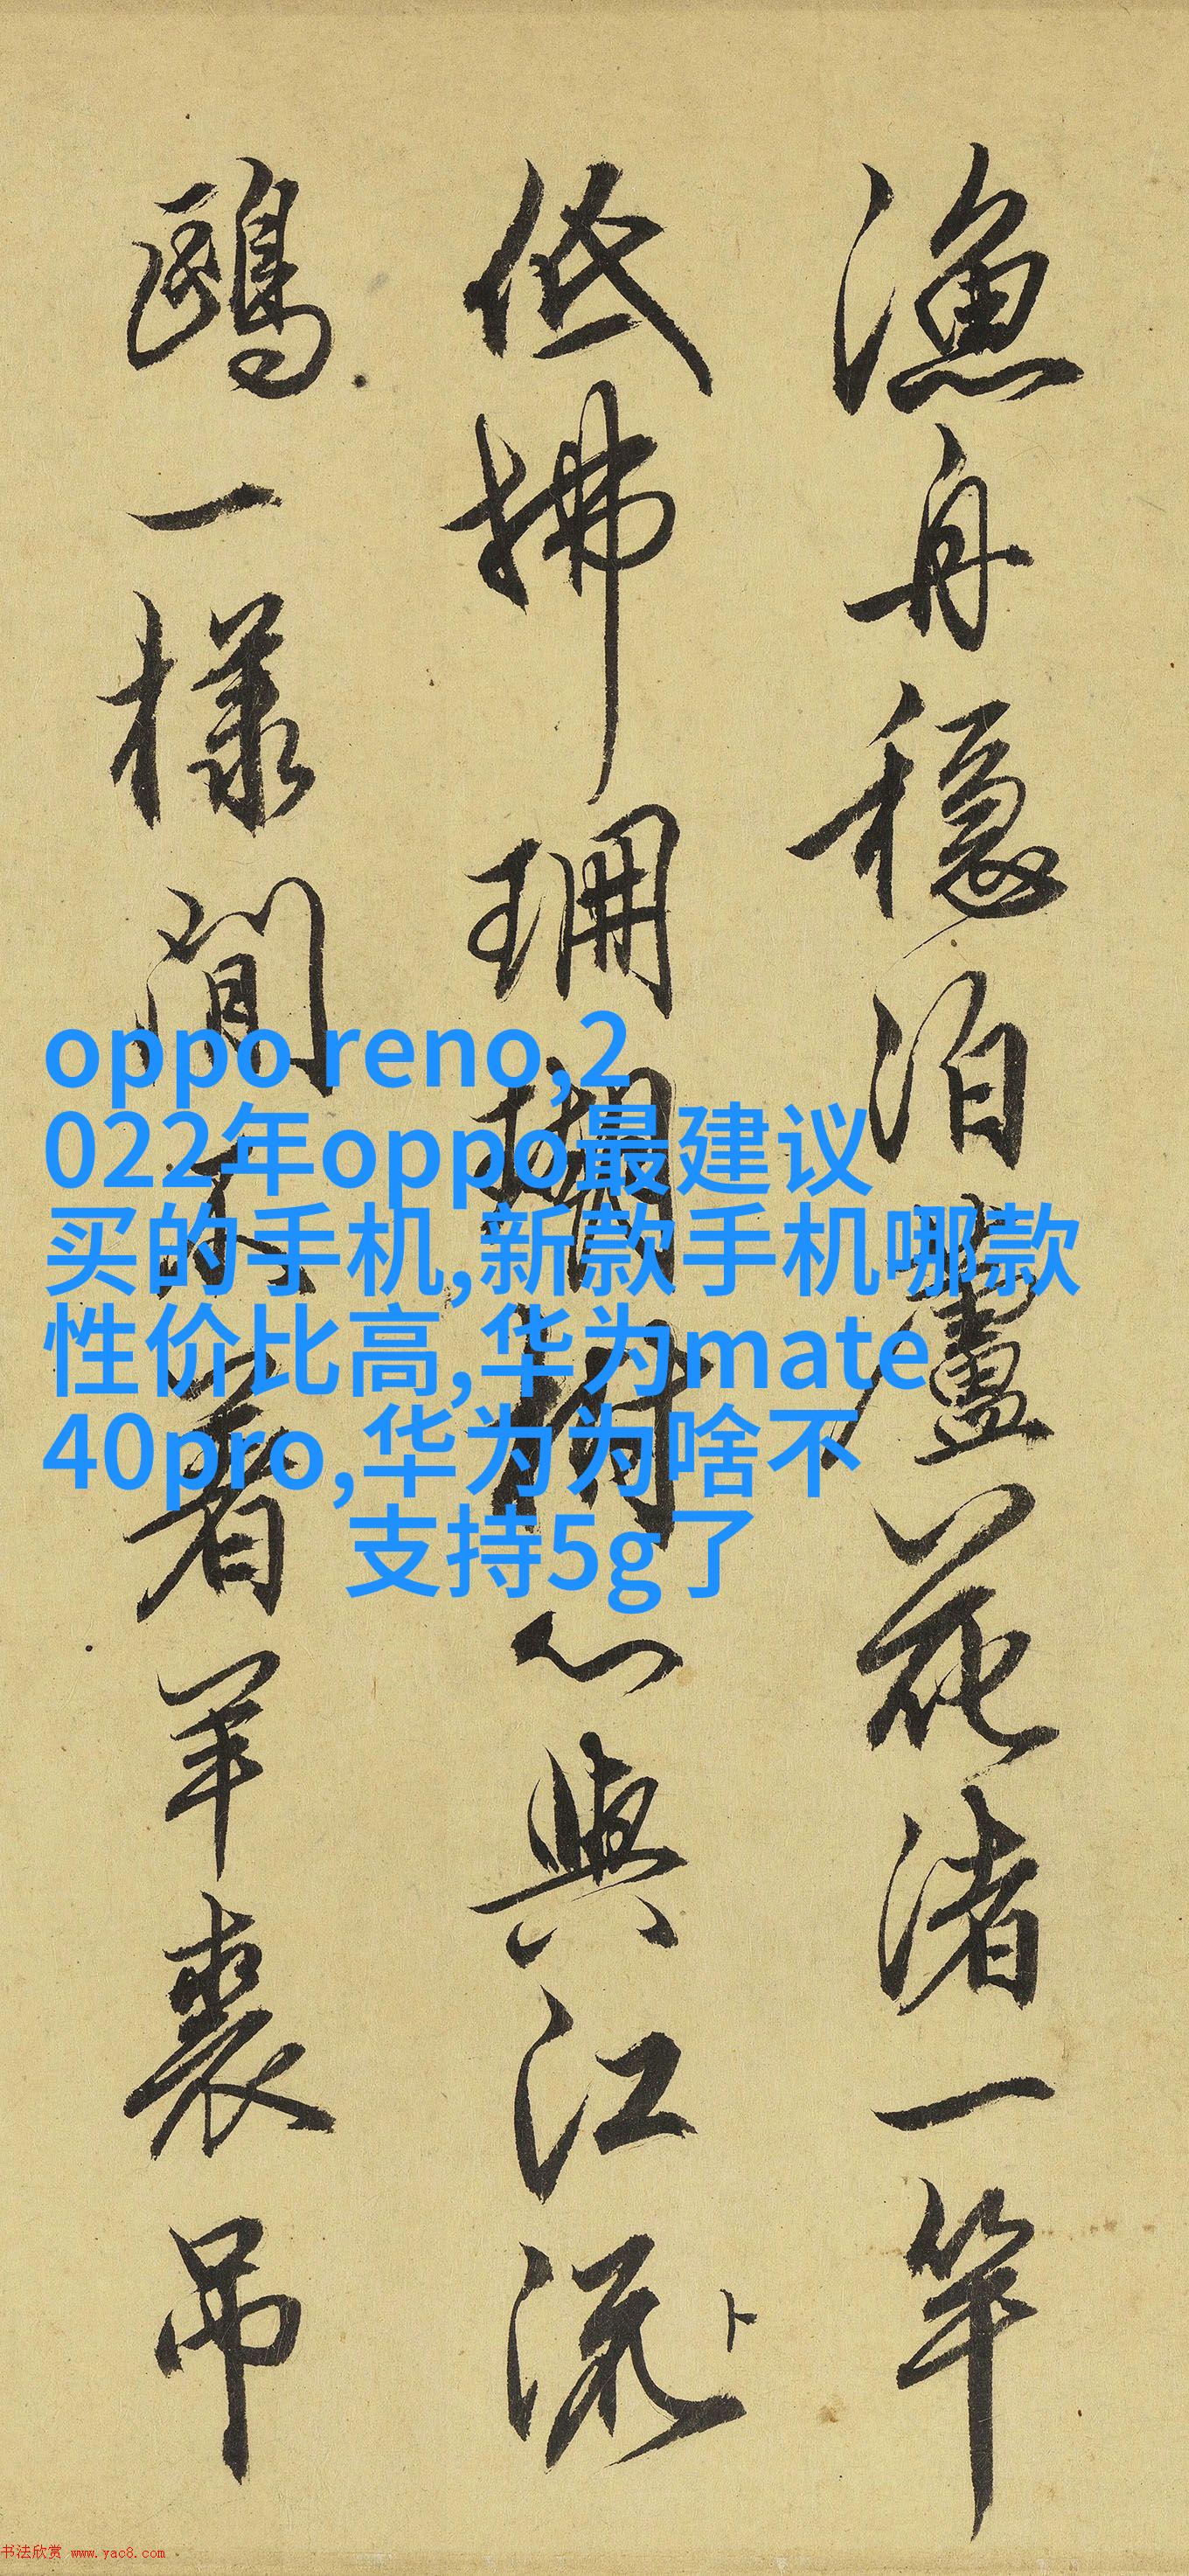 漁舟穩泊蘆花渚一竿
低拂珊瑚樹心與江流
鷗一樣閒不著羊裘吊
oppo reno,2
022年oppo最建议
买的手机,新款手机哪款
性价比高,华为mate
40pro,华为为啥不
支持5g了
书法欣赏 www.yac8.com